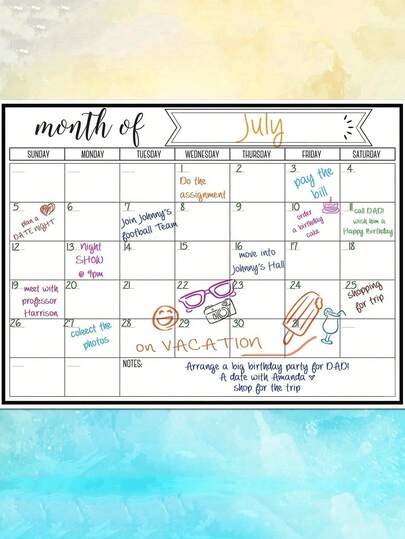 month of
July
SUNDAY MONDAY TUESDAY WEDNESDAY THURSDAY FRIDAY SATURDAY
1 2 3 4
Do the
assignment
pay the
bill
5 6 7 8 9 10 11
plan a
DATE NIGHT
Join Johnny's
football Team
order
a birthday
cake
call DAD!
wish him a
Happy Birthday
12 13 14 15 16 17 18
Night
SHOW
@ 9pm
move into
Johnny's Hall
19 20 21 22 23 24 25
meet with
professor
Harrison
shopping
for trip
26 27 28 29 30 31
colect the
photos
on VACATION
NOTES:
Arrange a big birthday party for DAD!
A date with Amanda
shop for the trip